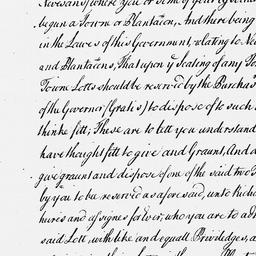 begun a Towne or Plantacon, And there being
in the Lawes of this Government, relating to New
and Plantacons, That upon ye laying of any To
Towne Lotts should be reserved by the Purchas
of the Governor (Gratis) to dispose of to such
thinke fitt; These are to let you understand
have thought fitt to give and Graunt, And d
give graunt and dispose of one of the said two T
by you to be reserved as aforesaid, unto Richa
heires and assignes for Ever, who you are to ad
said Lott, with like and equall Priviledges, a